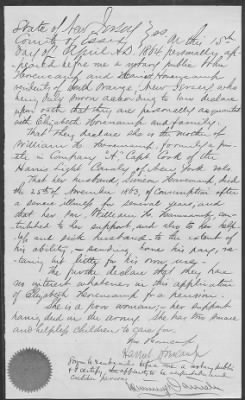 State of New Jersey } ss.
County of Essex } On this 15th
day of April A.D. 1864 personally ap-
peared before me a notary public John
Hovencamp and Hovencamp
residents of South Orange, New Jersey, who
being duly sworn according to law declare
upon oath that they are personally acquainted
with Elizabeth Hovencamp and family.
That they declare she is the mother of
William H. Hovencamp, formerly a pri-
vate in Company A. Capt Cook of the
Harris Light Cavalry of New York Vols.
That her husband, Hovencamp died
the 25th of November 1863, of Consumption after
a severe illness for several years, and
that her son, William H. Hovencamp, con-
tributed to her support, and also to her help-
less and sick husband, to the extent of
his ability, sending home his pay, re-
taining but little for his own use.
They further declare that they have
no interest whatever in this application
of Elizabeth Hovencamp for a pension.
She is a poor woman, her support
having died in the army. She has two more
and helpless children to care for.
Hovencamp
Harriet
Sworn & subscribed before me a notary public
& I certify the affiants to be respectable and
credible persons